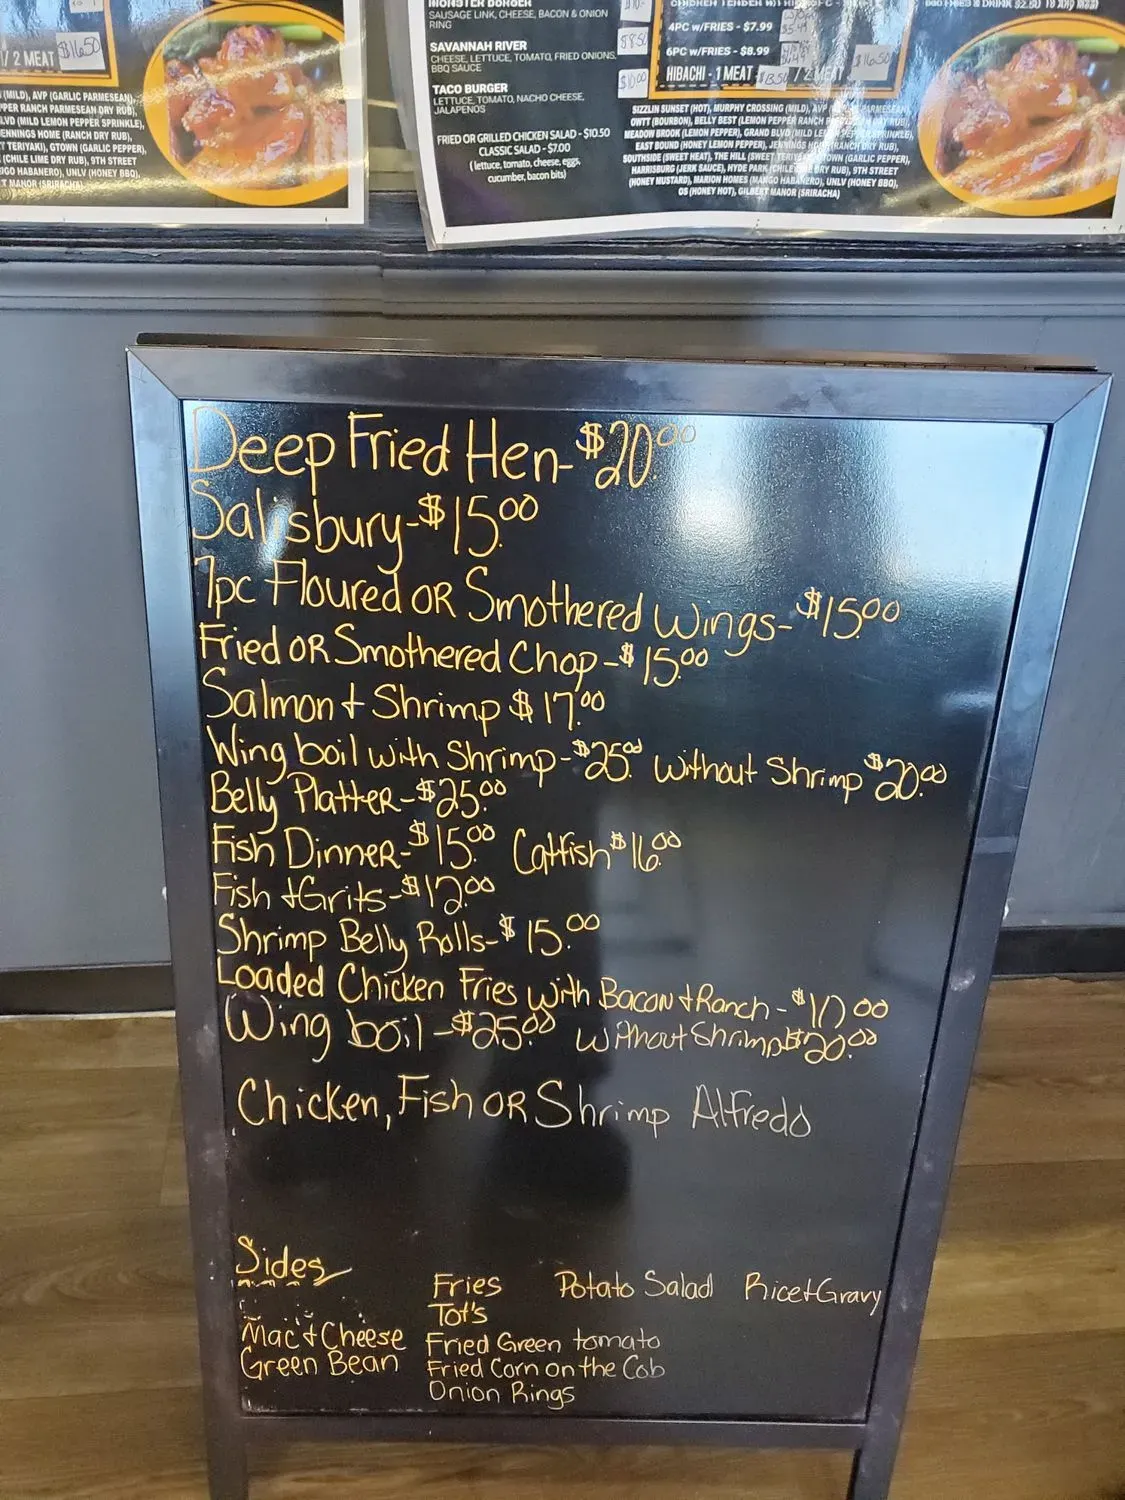 / 2 MEAT $16.50
(MILD), AVP (GARLIC PARMESEAN),
PER RANCH PARMESEAN DRY RUB),
LVD (MILD LEMON PEPPER SPRINKLE),
ENNINGS HOME (RANCH DRY RUB),
T TERIYAKI), GTOWN (GARLIC PEPPER),
(CHILE LIME DRY RUB), 9TH STREET
GO HABANERO), UNLV (HONEY BBQ),
T MANOR (SRIRACHA)
MONSTER BURGER
SAUSAGE LINK, CHEESE, BACON & ONION
RING
SAVANNAH RIVER
CHEESE, LETTUCE, TOMATO, FRIED ONIONS,
BBQ SAUCE
TACO BURGER
LETTUCE, TOMATO, NACHO CHEESE,
JALAPENOS
$10.00
FRIED OR GRILLED CHICKEN SALAD - $10.50
CLASSIC SALAD - $7.00
(lettuce, tomato, cheese, eggs,
cucumber, bacon bits)
4PC w/FRIES - $7.99
6PC w/FRIES - $8.99
HIBACHI - 1 MEAT / 2 MEAT $16.50
SIZZLIN SUNSET (HOT), MURPHY CROSSING (MILD), AVP PARMESEAN),
OWTT (BOURBON), BELLY BEST (LEMON PEPPER RANCH DRY RUB),
MEADOW BROOK (LEMON PEPPER), GRAND BLVD (MILD LEMON PEPPER SPRINKLE),
EAST BOUND (HONEY LEMON PEPPER), JENNINGS HOME (RANCH DRY RUB),
SOUTHSIDE (SWEET HEAT), THE HILL (SWEET TERIYAKI), GTOWN (GARLIC PEPPER),
HARRISBURG (JERK SAUCE), HYDE PARK (CHILE LIME DRY RUB), 9TH STREET
(HONEY MUSTARD), MARION HOMES (MANGO HABANERO), UNLV (HONEY BBQ),
OS (HONEY HOT), GILBERT MANOR (SRIRACHA)
Deep Fried Hen-$20.00
Salisbury-$15.00
7pc Floured OR Smothered Wings-$15.00
Fried OR Smothered Chop-$15.00
Salmon + Shrimp $17.00
Wing boil with Shrimp-$25.00 Without Shrimp $20.00
Belly Platter-$25.00
Fish Dinner-$15.00 Catfish $16.00
Fish + Grits-$12.00
Shrimp Belly Rolls-$15.00
Loaded Chicken Fries with Bacon + Ranch-
Wing boil-$25.00 Without Shrimp $20.00
Chicken, Fish OR Shrimp Alfredo
Sides
Fries Potato Salad Rice + Gravy
Tot's
Mac + Cheese Fried Green tomato
Green Bean Fried Corn on the Cob
Onion Rings